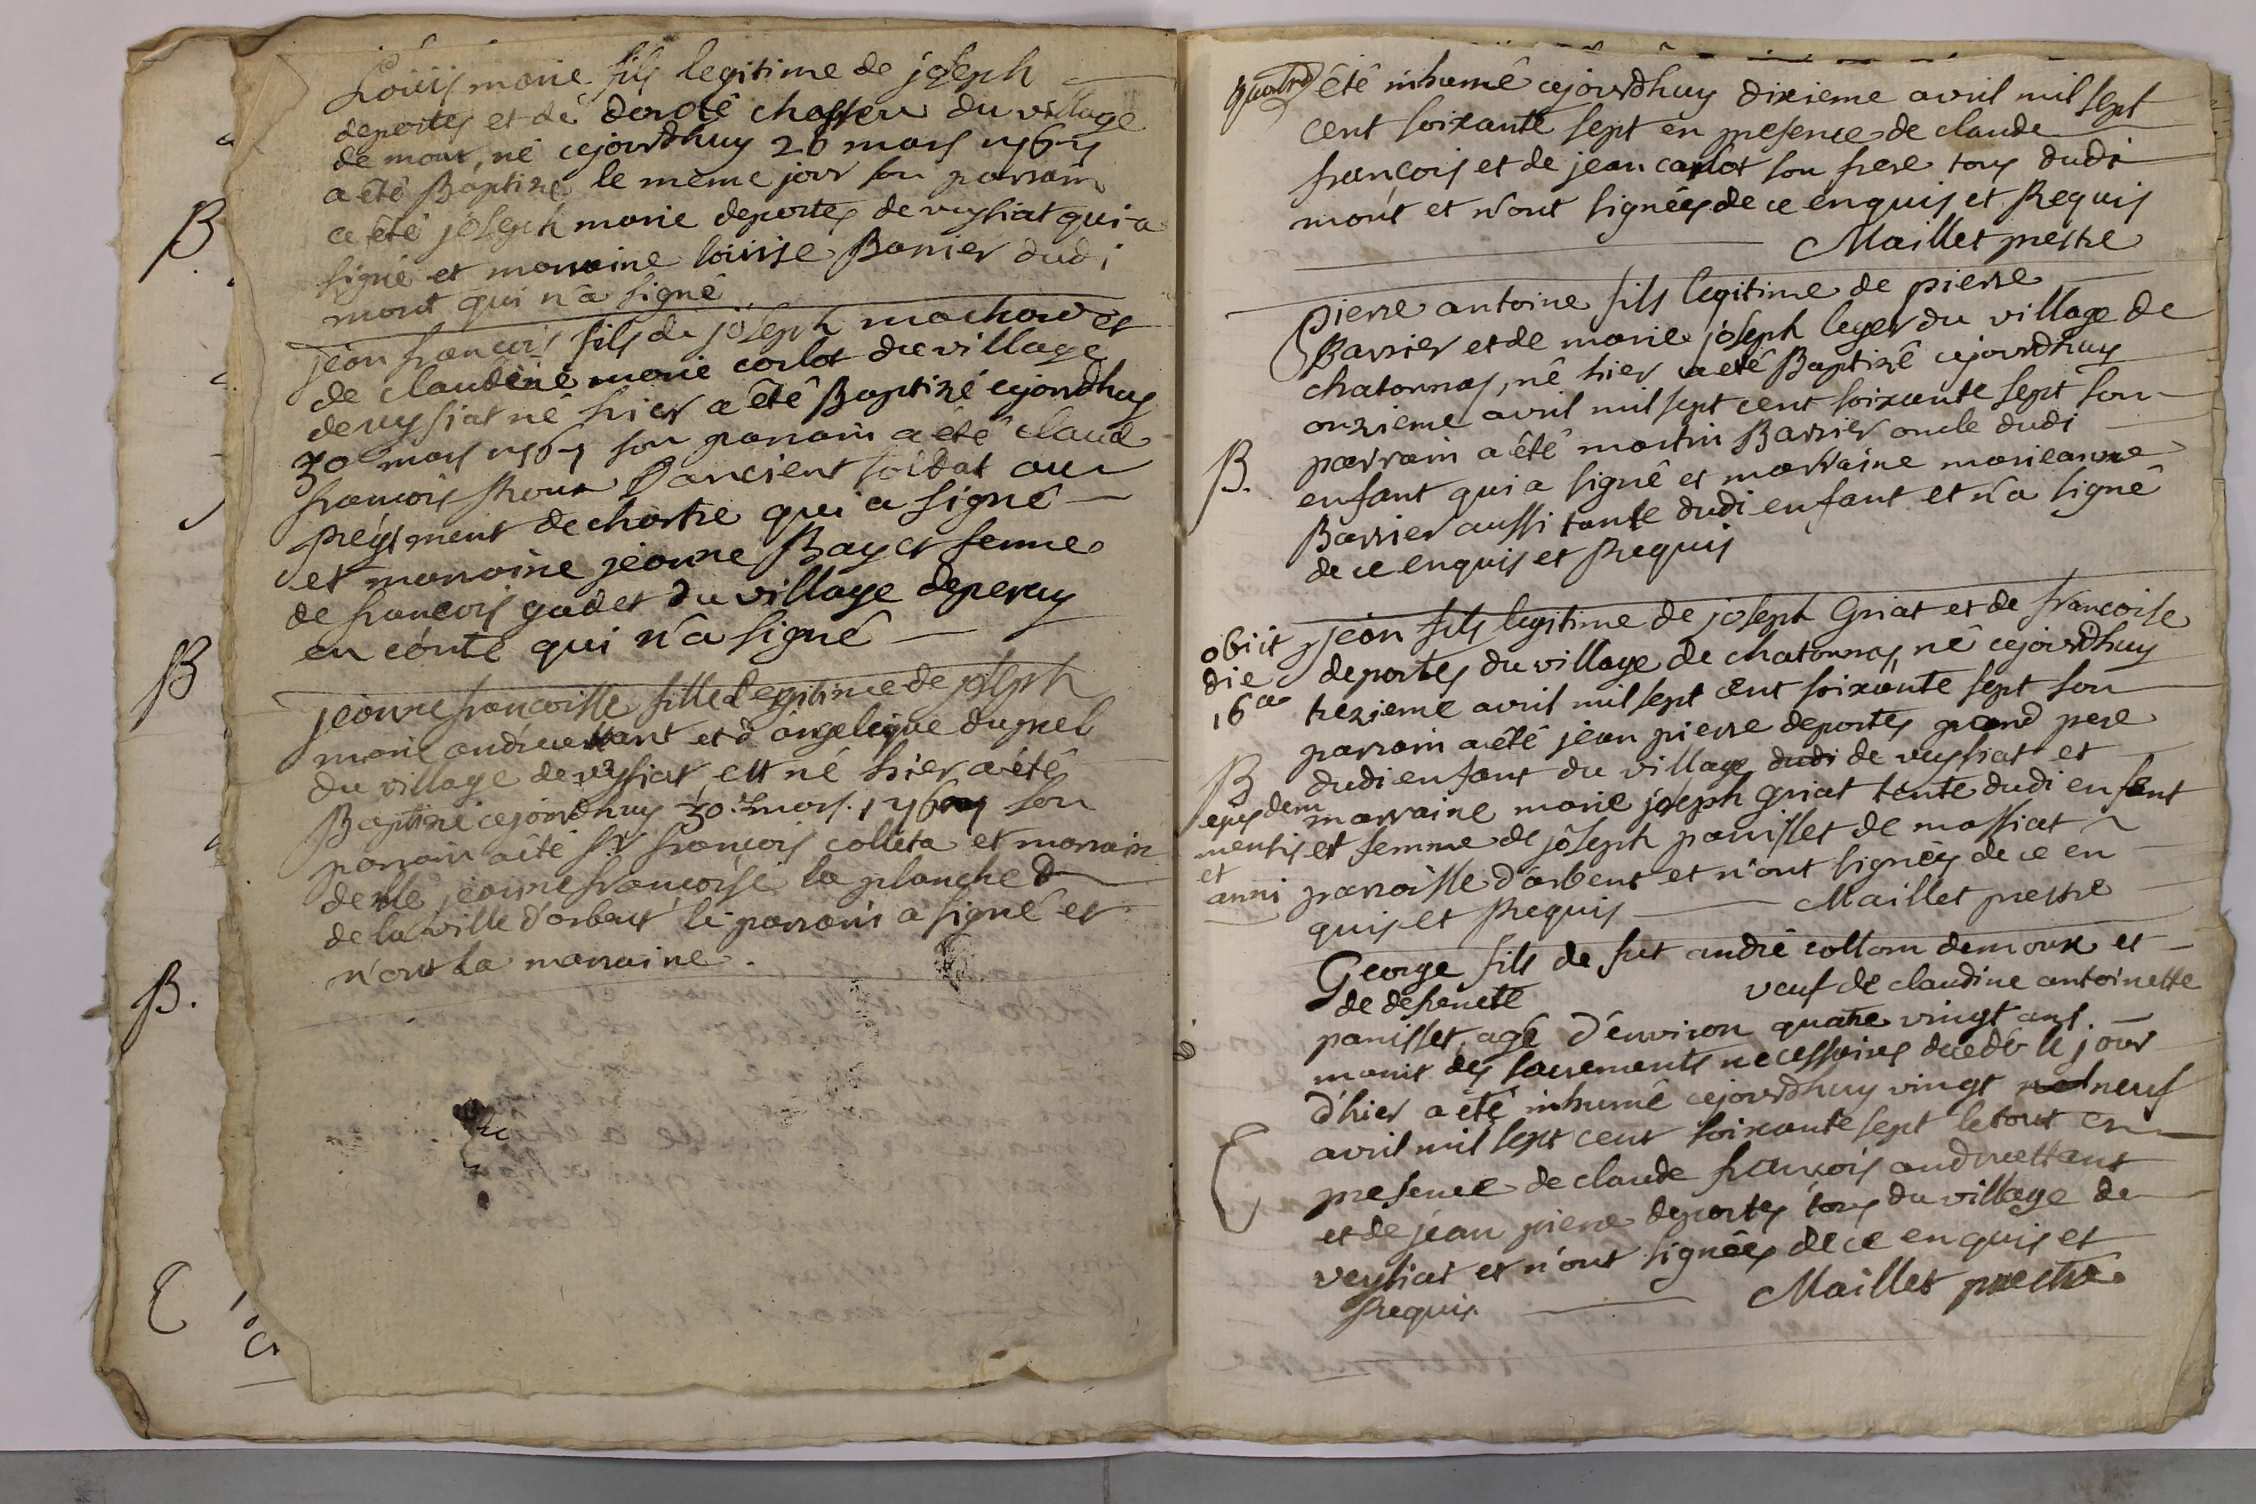 Loüis marie fils legitime de joseph
deportes et de dorotê chasseu du village
de mont, nê cejourdhuy 26 mars 1767
a êtê Baptizé le mème jour son parrain
a êtê joseph marie deportes de veysiat qui a
signé et marraine loüise Barrier dudi
mont qui n'a signê
B
jean françois fils de joseph machard et
de claudine marie carlot du village
de vysiat nê hier a êtê Baptizé cejourdhuy
30e mars 1767 son parrain a êtê claud
françois Roux ancient soldat au
Regiment de chartre qui a signê
et marraine jeanne Bayet femme
de françois gadet du village de peray
en conté qui n'a signé
B
jeanne françoisse fille legitime de joseph
marie andreettant et d'angelique dupuel
du village de vysiat, est né hier a êtê
Baptizé cejourdhuy 30e mars 1767 son
parrain a été sr françois colleta et marrain
delle jeanne françoise la planche
de la ville d'arbent le parrain a signé et
n'ont la marraine.
B.
quatre êtê inhumê cejourdhuy dixieme avril mil sept
cent soixante sept en presence de claude
françois et de jean carlot son frere tous dudi
mont et n'ont signées de ce enquis et Requis
Maillet prestre
pierre antoine fils legitime de pierre
Barrier et de marie joseph leger du village de
chatonnas, nê hier a etê Baptizê cejourdhuy
onzieme avril mil sept cent soixante sept son
parrain a êtê martin Barrier oncle dudi
B.
enfant qui a signê et marraine marieanne
Barrier aussi tante dudi enfant et n'a signê
de ce enquis et Requis
obiit
die
16a
jean fils legitime de joseph Griat et de françoise
deportes du village de chatonnas, nê cejourdhuy
trezieme avril mil sept cent soixante sept son
parrain a êtê jean pierre deportes grand pere
B
dudi enfant du village dudi de veysiat et
ejusdem
mensis
et
anni
marraine marie joseph griat tente dudi enfent
et femme de joseph panisset de massiat
parroisse d'arbent et n'ont signées de ce en
quis et Requis Maillet prestre
George fils de fut andrê collom demoux et
de defuncte veuf de claudine antoinette
panisset, agê d'environ quatre vingt ans.
munit des sacrements necessaires decedé le jour
d'hier a êtê inhumê cejourdhuy vingt neuf
avril mil sept cent soixante sept le tout en
presence de claude françois andreettant
et de jean pierre deportes tous du village de
veysiat et n'ont signées de ce enquis et
Requis. Maillet prestre